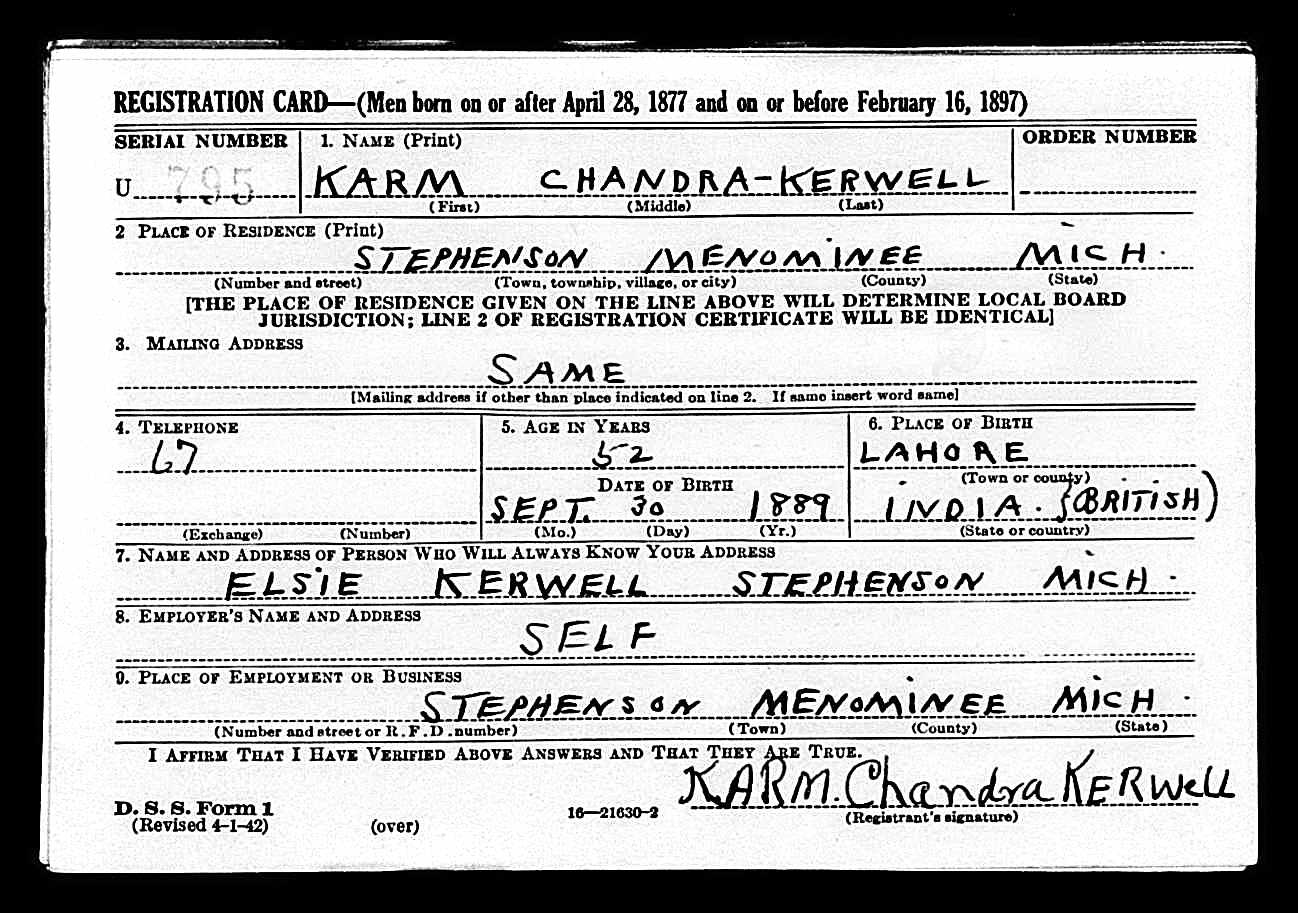 REGISTRATION CARD—(Men born on or after April 28, 1877 and on or before February 16, 1897)
SERIAL NUMBER 1. NAME (Print) ORDER NUMBER
U 795 KARM CHANDRA-KERWELL
(First) (Middle) (Last)
2 PLACE OF RESIDENCE (Print)
STEPHENSON MENOMINEE MICH.
(Number and street) (Town, township, village, or city) (County) (State)
[THE PLACE OF RESIDENCE GIVEN ON THE LINE ABOVE WILL DETERMINE LOCAL BOARD
JURISDICTION; LINE 2 OF REGISTRATION CERTIFICATE WILL BE IDENTICAL]
3. MAILING ADDRESS
SAME
[Mailing address if other than place indicated on line 2. If same insert word same]
4. TELEPHONE 5. AGE IN YEARS 6. PLACE OF BIRTH
67 52 LAHORE
DATE OF BIRTH (Town or county)
SEPT. 30 1889 INDIA. (BRITISH)
(Exchange) (Number) (Mo.) (Day) (Yr.) (State or country)
7. NAME AND ADDRESS OF PERSON WHO WILL ALWAYS KNOW YOUR ADDRESS
ELSIE KERWELL STEPHENSON MICH.
8. EMPLOYER'S NAME AND ADDRESS
SELF
9. PLACE OF EMPLOYMENT OR BUSINESS
STEPHENSON MENOMINEE MICH.
(Number and street or R.F.D. number) (Town) (County) (State)
I AFFIRM THAT I HAVE VERIFIED ABOVE ANSWERS AND THAT THEY ARE TRUE.
KARM. Chandra KERWELL
D. S. S. Form 1 16—21630-2 (Registrant's signature)
(Revised 4-1-42) (over)